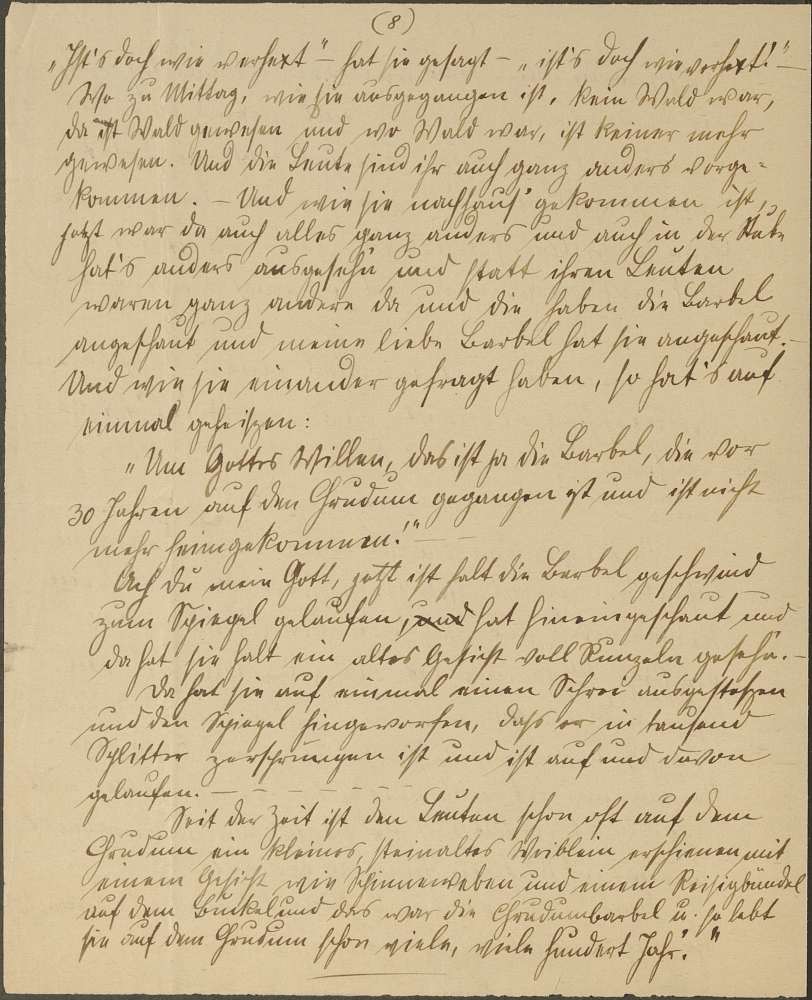 (8)
„Ist's doch wie verhext" – hat sie gesagt – „ist's doch wie verhext!" –
Wo zu Mittag, wie sie ausgegangen ist, kein Wald war,
da ist Wald gewesen und wo Wald war, ist keiner mehr
gewesen. Und die Leute sind ihr auch ganz anders vorge-
kommen. – Und wie sie nachhaus' gekommen ist,
jetzt war da auch alles ganz anders und auch in der Stube
hat's anders ausgesehn und statt ihren Leuten
waren ganz andere da und die haben die Barbel
angeschaut und meine liebe Barbel hat sie angeschaut. –
Und wie sie einander gefragt haben, so hat's auf
einmal geheißen:
„Um Gottes Willen, das ist ja die Barbel, die vor
30 Jahren auf den Grudum gegangen ist und ist nicht
mehr heimgekommen!" – –
Ach du mein Gott, jetzt ist halt die Barbel geschwind
zum Spiegel gelaufen, und hat hineingeschaut und
da hat sie halt ein altes Gesicht voll Runzeln gesehn. –
Da hat sie auf einmal einen Schrei ausgestoßen
und den Spiegel hingeworfen, dass er in tausend
Splitter zersprungen ist und ist auf und davon
gelaufen. – – – – – – –
Seit der Zeit ist den Leuten schon oft auf dem
Grudum ein kleines, steinaltes Weiblein erschienen mit
einem Gesicht wie Spinneweben und einem Reisigbündel
auf dem Buckel und das war die Grudumbarbel u. so lebt
sie auf dem Grudum schon viele, viele hundert Jahr'."